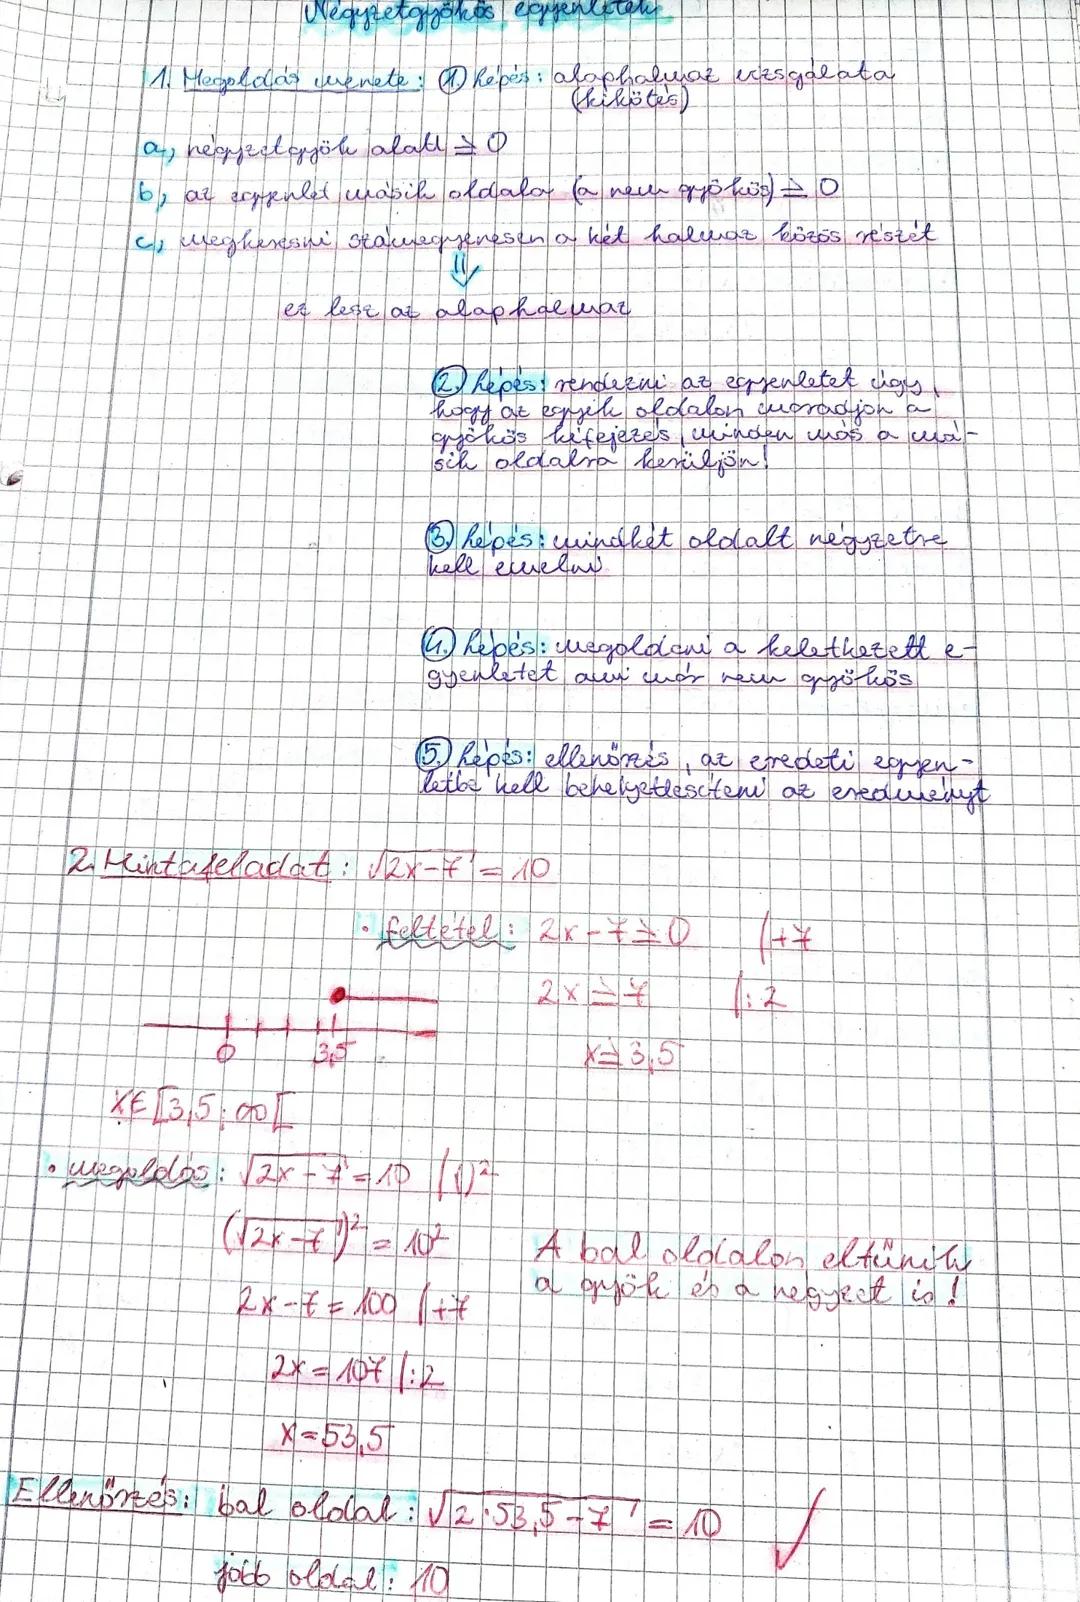 Négyzetgyökös egyenletek
1. Megoldás menete: 1. lépés: alaphalmaz vizsgálata
(kikötés)
a, négyzetgyök alatt ≥ 0
b, az egyenlet másik oldala (a nem gyökös) ≥ 0
c, megkeresni számegyenesen a két halmaz közös részét
⇓
ez lesz az alaphalmaz
2. lépés: rendezni az egyenletet úgy,
hogy az egyik oldalon maradjon a
gyökös kifejezés, minden más a má-
sik oldalra kerüljön!
3. lépés: mindkét oldalt négyzetre
kell emelni
4. lépés: megoldani a keletkezett e-
gyenletet ami már nem gyökös
5. lépés: ellenőrzés, az eredeti egyen-
letbe kell behelyettesíteni az eredményt
2. Mintafeladat: √2x-7 = 10
• feltétel: 2x-7 ≥ 0 /+7
2x ≥ 7 /:2
0 3,5
x ≥ 3,5
x∈[3,5; ∞[
• megoldás: √2x-7 = 10 /()²
(√2x-7)² = 10²
A bal oldalon eltűnik
a gyök és a négyzet is!
2x-7 = 100 /+7
2x = 107 /:2
x = 53,5
Ellenőrzés: bal oldal: √2·53,5-7 = 10 ✓
jobb oldal: 10